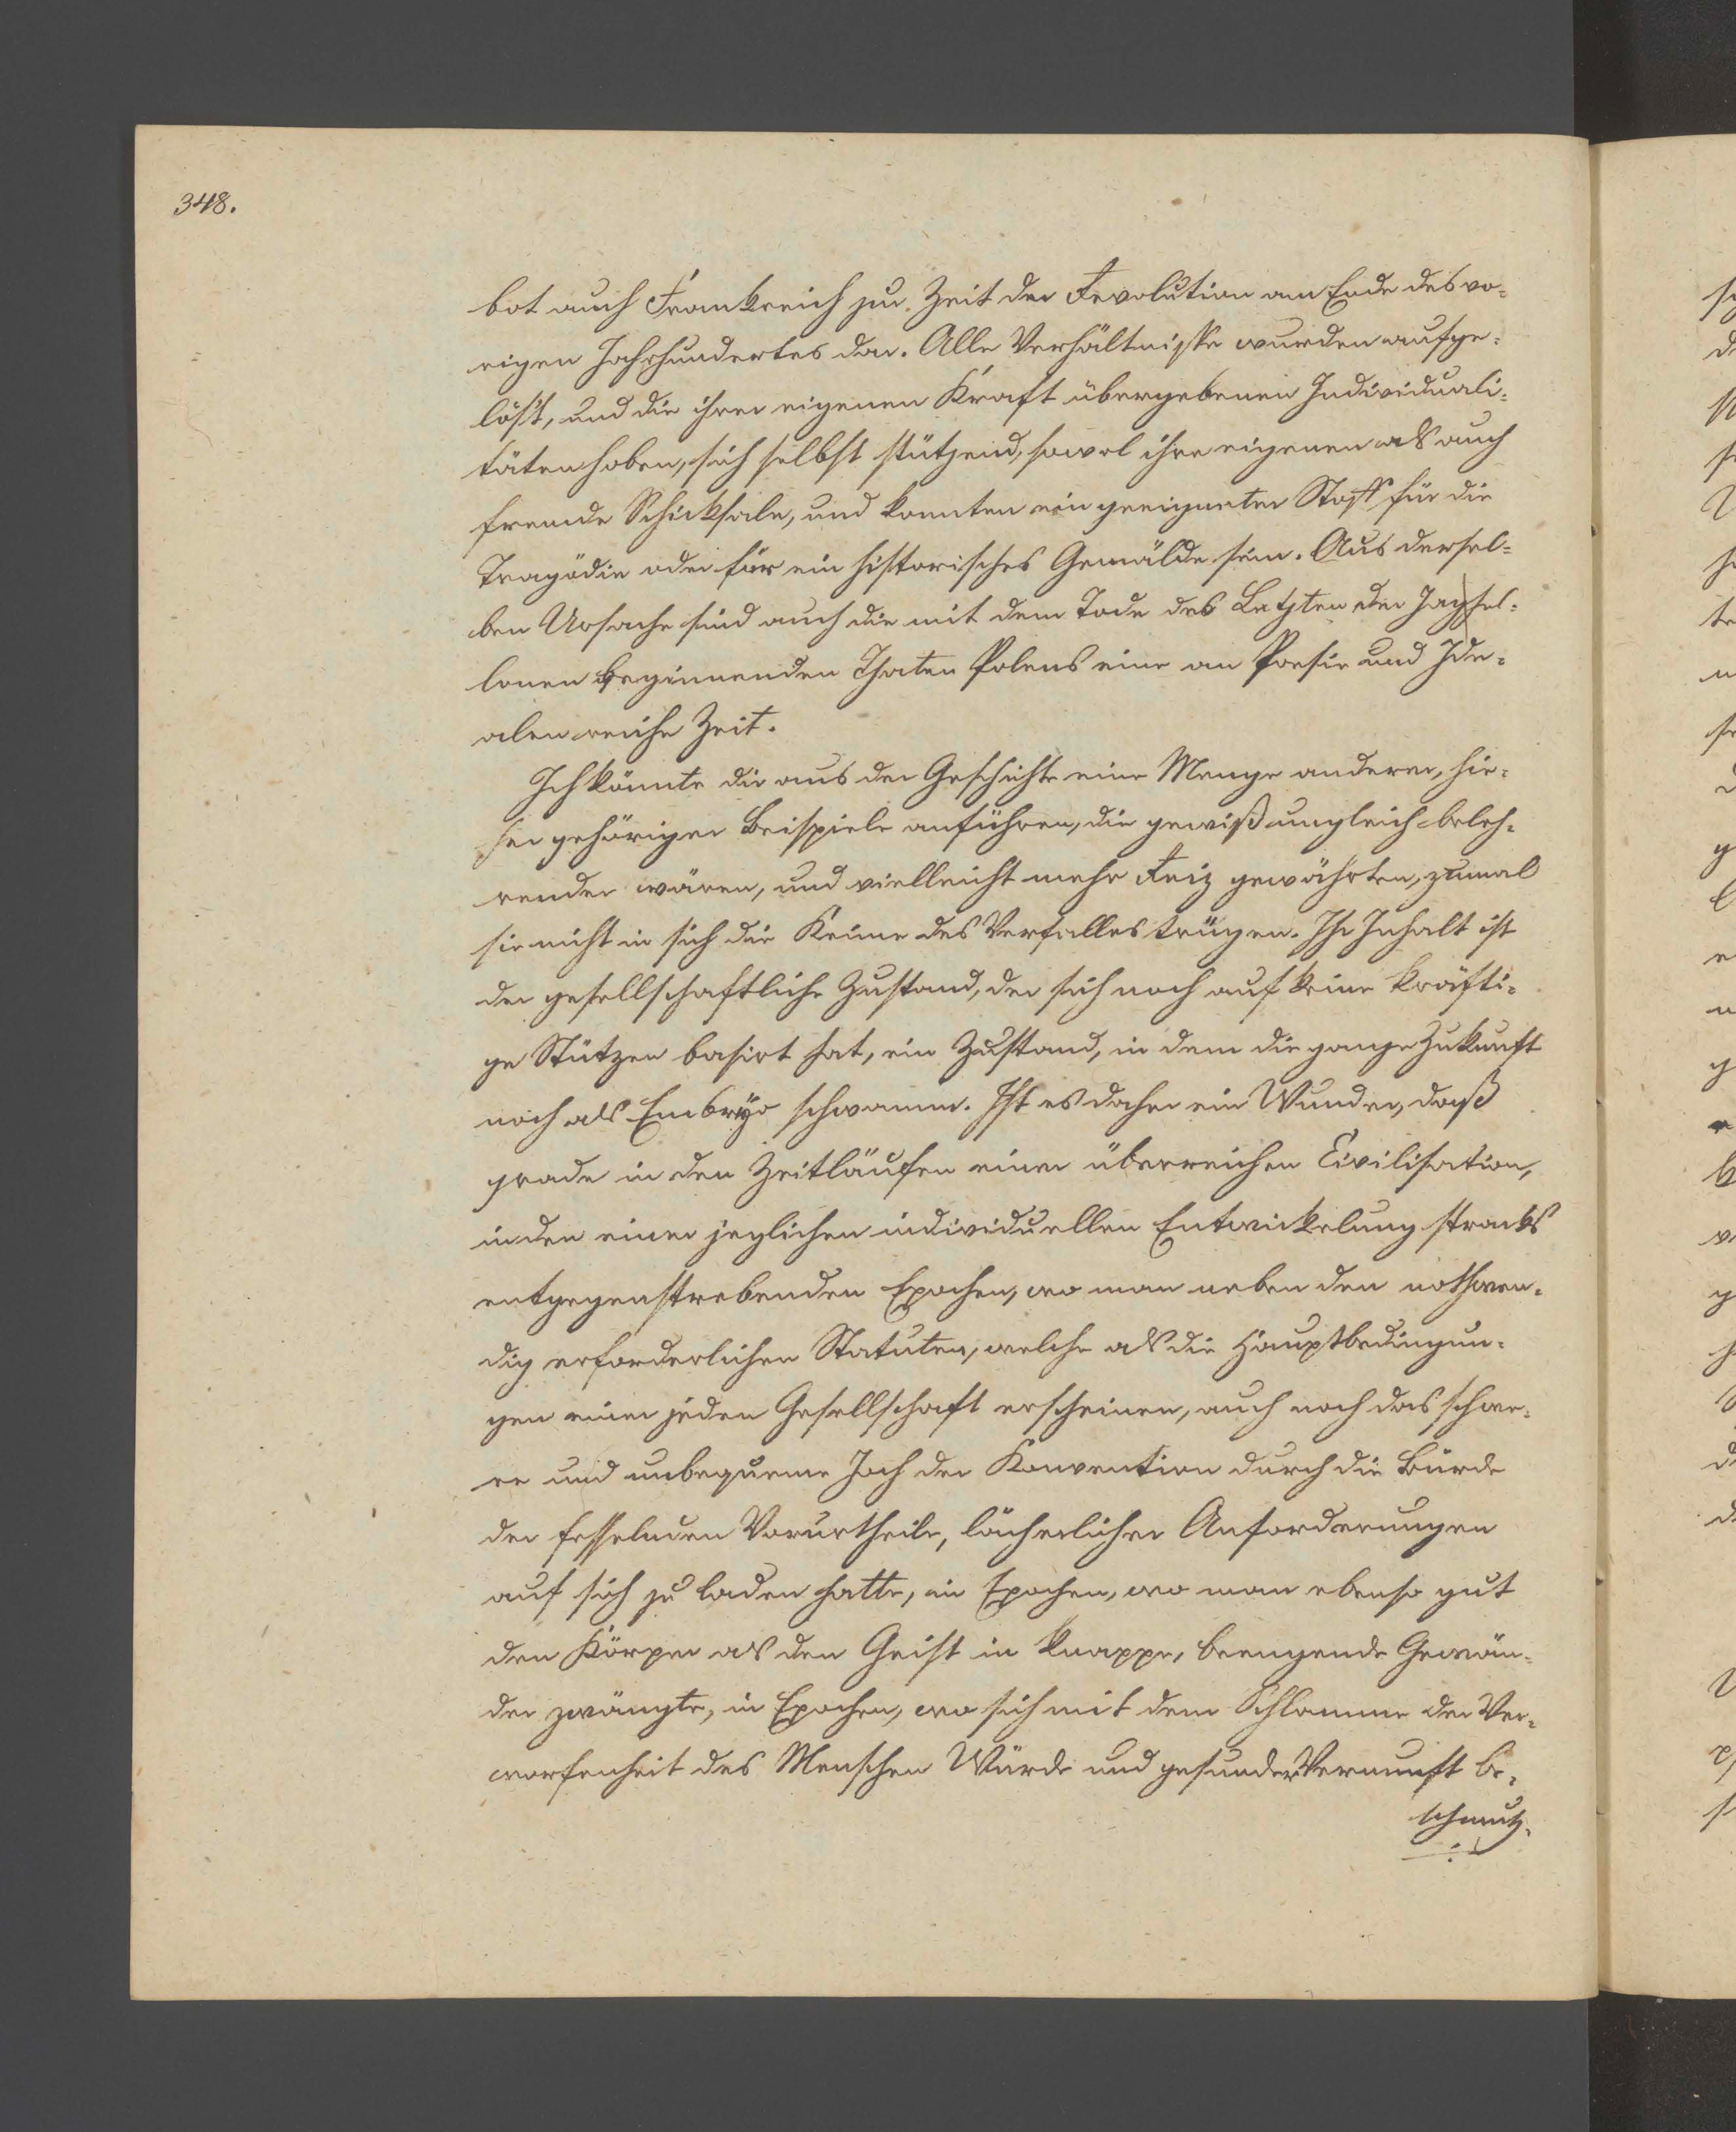 348.
bot auch Frankreich zur Zeit der Revolution am Ende des vo-
rigen Jahrhundertes dar. Alle Verhältnisse wurden aufge-
löst, und die ihrer eigenen Kraft übergebenen Individuali-
täten hoben, sich selbst stützend, sowol ihre eigenen als auch
fremde Schicksale, und konnten ein geeigneter Stoff für die
Tragödie oder für ein historisches Gemälde sein. Aus dersel-
ben Ursache sind auch die mit dem Tode des Letzten der Jagiel-
lonen beginnenden Thaten Polens eine an Poesie und Ide-
alen reiche Zeit.
Ich könnte dir aus der Geschichte eine Menge anderer, hie-
her gehöriger Beispiele anführen, die gewiß ungleich beleh-
render wären, und vielleicht mehr Reiz gewährten, zumal
sie nicht in sich die Keime des Verfalles trügen. Ihr Inhalt ist
der gesellschaftliche Zustand, der sich noch auf keine kräfti-
ge Stützen basirt hat, ein Zustand, in dem die ganze Zukunft
noch als Embryo schwamm. Ist es daher ein Wunder, daß
grade in den Zeitläufen einer überreichen Civilisation,
in den einer jeglichen individuellen Entwickelung stracks
entgegenstrebenden Epochen, wo man neben den nothwen-
dig erforderlichen Statuten, welche als die Hauptbedingun-
gen einer jeden Gesellschaft erscheinen, auch noch das schwe-
re und unbequeme Joch der Konvention durch die Bürde
der fesselnden Vorurtheile, lächerlicher Anforderungen
auf sich zu laden hatte, in Epochen, wo man ebenso gut
den Körper als den Geist in knappe, beengende Gewän-
der zwängte, in Epochen, wo sich mit dem Schlamme der Ver-
worfenheit des Menschen Würde und gesunder Vernunft be-
schmutz-